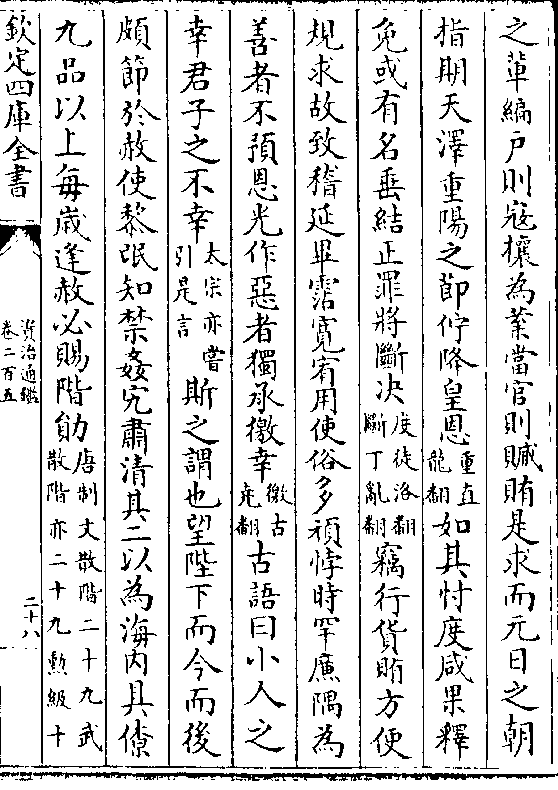 之輩編戶則寇攘為業當官則贓賄是求而元日之朝
指期天澤重陽之節佇降皇恩重直龍翻如其忖度咸果釋
免或有名垂結正罪將斷决度徒洛翻斷丁亂翻竊行貨賄方便
規求故致稽延畢霑寛宥用使俗多頑悖時罕廉隅為
善者不預恩光作惡者獨承徼幸徼古堯翻古語曰小人之
幸君子之不幸太宗亦嘗引是言斯之謂也望陛下而今而後
頗節於赦使黎氓知禁姦宄肅清其二以為海内具僚
九品以上每歲逢赦必賜階勛唐制文散階二十九武散階亦二十九勲級十
欽定四庫全書
資治通鑑
卷二百五
二十八